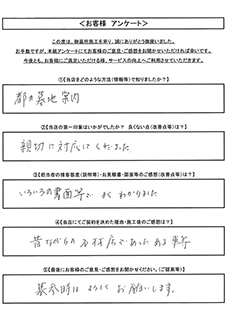 ＜お客様 アンケート＞
この度は、御墓所施工を承り、誠にありがとう御座いました。
お手数ですが、本紙アンケートにてお客様のご意見・ご感想をお聞かせいただければ幸いです。
今後とも、お客様にご満足いただける様、サービスの向上へご利用させていただきます。
①【当店をどのような方法（情報等）で知りましたか？】
都の墓地案内
②【当店の第一印象はいかがでしたか？ 良くない点（改善点等）は？】
親切に対応してくださった
③【担当者の接客態度（説明等）・お見積書・図面等のご感想（改善点等）は？】
いろいろの書面等でよくわかりました
④【当店にてご契約を決めた理由・施工後のご感想は？】
昔ながらの石材店であったある事等
⑤【最後にお客様のご意見・ご感想をお聞かせください。（ご提案等）】
墓参時はよろしくお願いします。